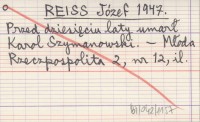 REISS Józef 1947.
Przed dziesięciu laty umarł
Karol Szymanowski. – Młoda
Rzeczpospolita 2, nr 12, il.